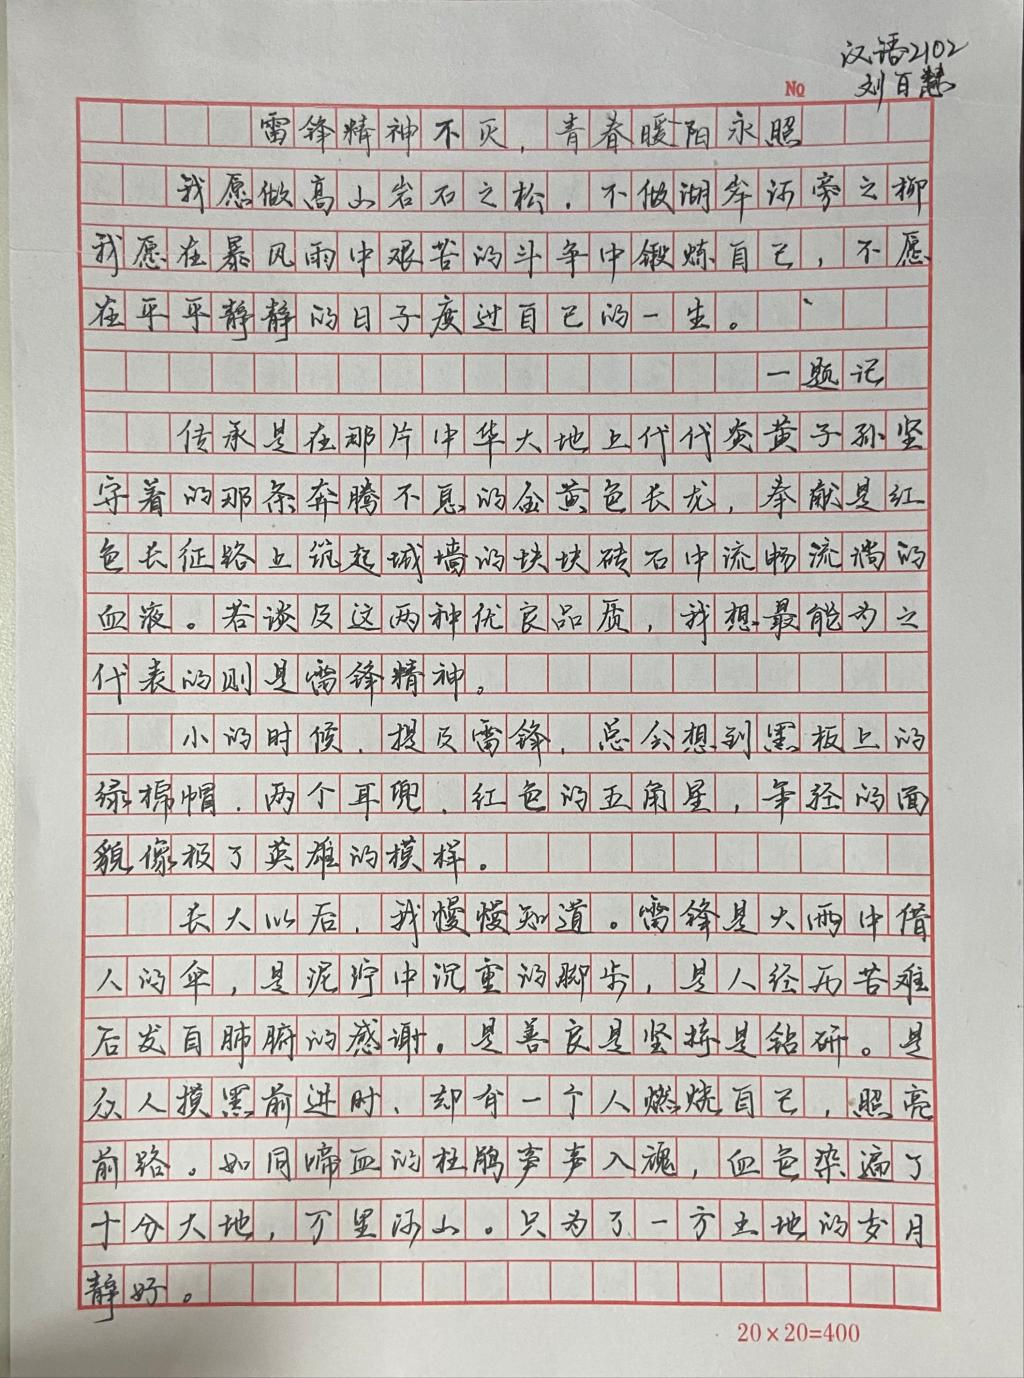 汉语2102
刘百慧
№
雷锋精神不灭，青春暖阳永照
我愿做高山岩石之松，不做湖岸河旁之柳
我愿在暴风雨中艰苦的斗争中锻炼自己，不愿
在平平静静的日子度过自己的一生。
一题记
传承是在那片中华大地上代代炎黄子孙坚
守着的那条奔腾不息的金黄色长龙，奉献是红
色长征路上筑起城墙的块块砖石中流畅流淌的
血液。若谈及这两种优良品质，我想最能为之
代表的则是雷锋精神。
小的时候，提及雷锋，总会想到黑板上的
绿棉帽，两个耳兜，红色的五角星，年轻的面
貌像极了英雄的模样。
长大以后，我慢慢知道。雷锋是大雨中借
人的伞，是泥泞中沉重的脚步，是人经历苦难
后发自肺腑的感谢。是善良是坚持是钻研。是
众人摸黑前进时，却有一个人燃烧自己，照亮
前路。如同啼血的杜鹃声声入魂，血色染遍了
十分大地，万里河山。只为了一方土地的岁月
静好。
20×20=400